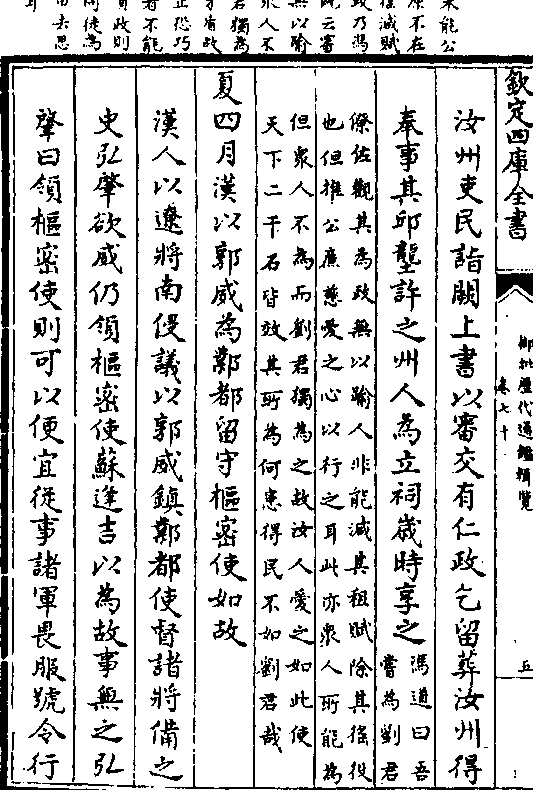 欽定四庫全書
御批歷代通鑑輯覽
卷七十
五
汝州吏民詣闕上書以審交有仁政乞留葬汝州得
奉事其邱壟許之州人為立祠歲時享之馮道曰吾
嘗為劉君
僚佐觀其為政無以踰人非能減其租賦除其徭役
也但推公廉慈愛之心以行之耳此亦衆人所能為
但衆人不為而劉君獨為之故汝人愛之如此使
天下二千石皆效其所為何患得民不如劉君哉
夏四月漢以郭威為鄴都留守樞密使如故
漢人以遼將南侵議以郭威鎮鄴都使督諸將備之
史弘肇欲威仍領樞密使蘇逢吉以為故事無之弘
肇曰領樞密使則可以便宜從事諸軍畏服號令行